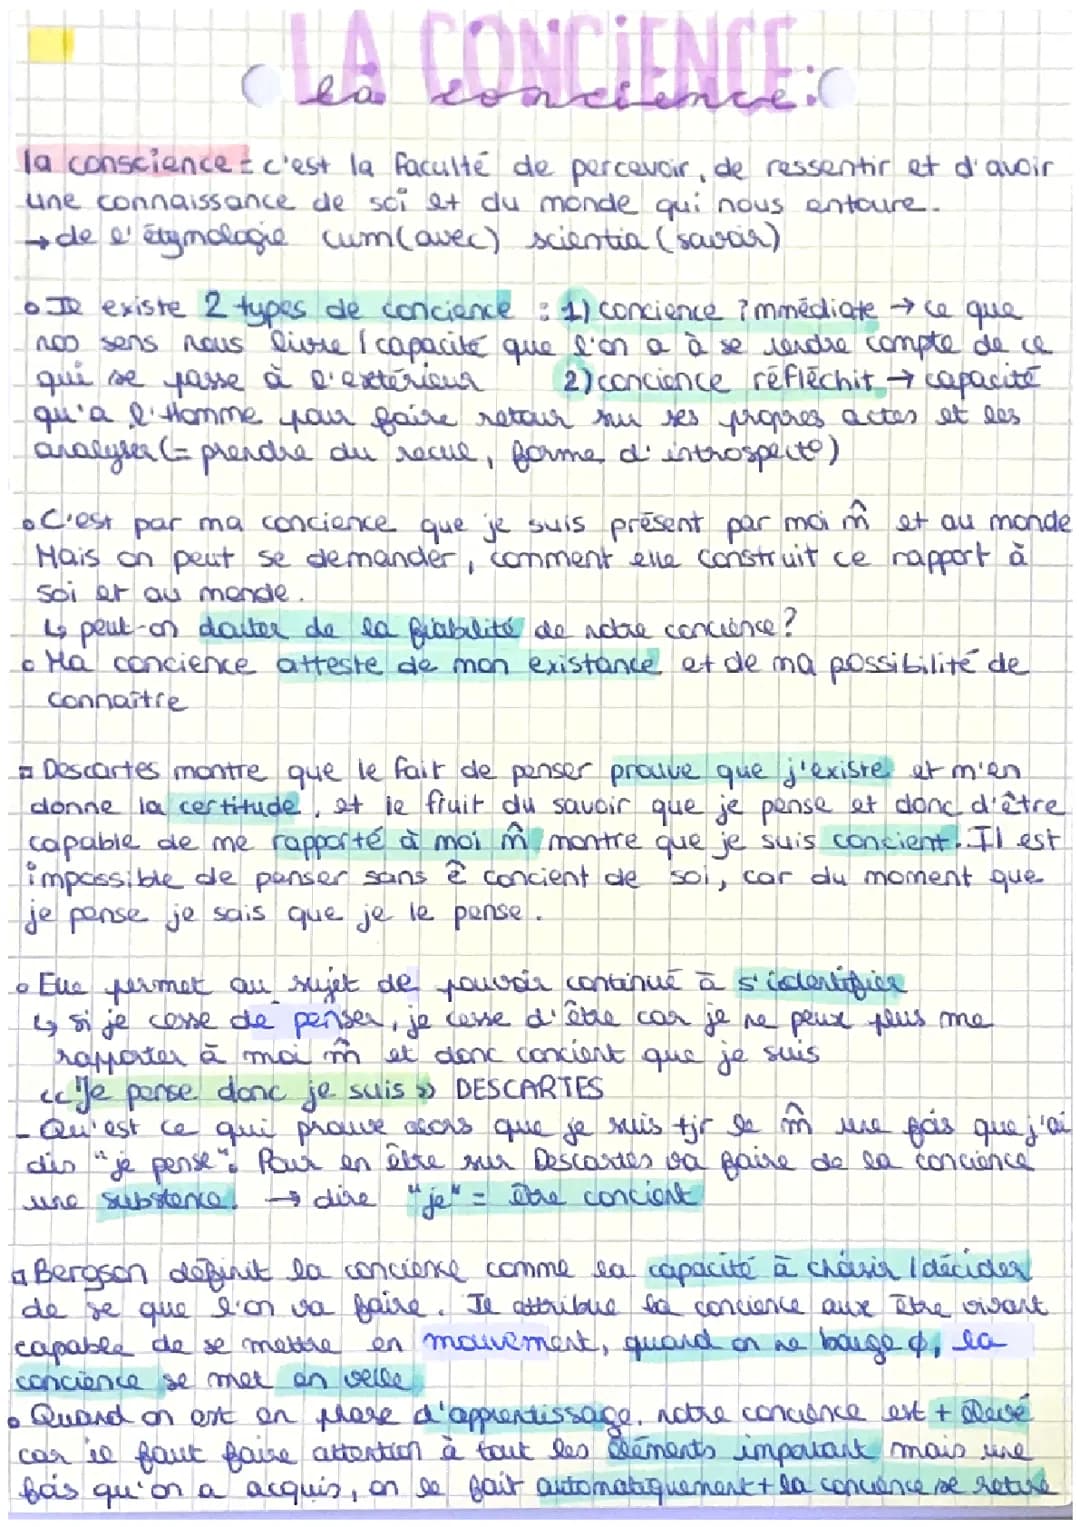 LA CONCIENCE:
la concience:
la conscience = c'est la faculté de percevoir, de ressentir et d'avoir
une connaissance de soi et du monde qui nous entoure.
→ de l'étymologie cum (avec) scientia (savoir)
• Il existe 2 types de concience : 1) concience immédiate → ce que
nos sens nous livre / capacité que l'on a à se rendre compte de ce
qui se passe à l'extérieur 2) concience réfléchit → capacité
qu'a l'Homme pour faire retour sur ses propres actes et les
analyser (= prendre du recul, forme d'introspect°)
• C'est par ma concience que je suis présent par moi m̂ et au monde
Mais on peut se demander, comment elle construit ce rapport à
soi et au monde.
↳ peut-on douter de la fiabilité de notre concience ?
• Ma concience atteste de mon existance et de ma possibilité de
connaître
▫ Descartes montre que le fait de penser prouve que j'existe et m'en
donne la certitude, et le fruit du savoir que je pense et donc d'être
capable de me rapporté à moi m̂ montre que je suis concient. Il est
impossible de penser sans ê concient de soi, car du moment que
je pense je sais que je le pense.
• Elle permet au sujet de pouvoir continué à s'identifier
↳ si je cesse de penser, je cesse d'être car je ne peux plus me
rapporter à moi m̂ et donc concient que je suis
<< "Je pense donc je suis >> DESCARTES
- Qu'est ce qui prouve alors que je suis tjr le m̂ une fois que j'ai
dis "je pense". Pour en être sur Descartes va faire de la concience
une substance. → dire "je" = être concient
▫ Bergson définit la concience comme la capacité à choisir / décider
de se que l'on va faire. Il attribue la concience aux être vivant
capable de se mettre en mouvement, quand on ne bouge ϕ, la
concience se met en veille
• Quand on est en phase d'apprentissage, notre concience est + élevé
car il faut faire attention à tout les éléments important mais une
fois qu'on a acquis, on le fait automatiquement + la concience se retire